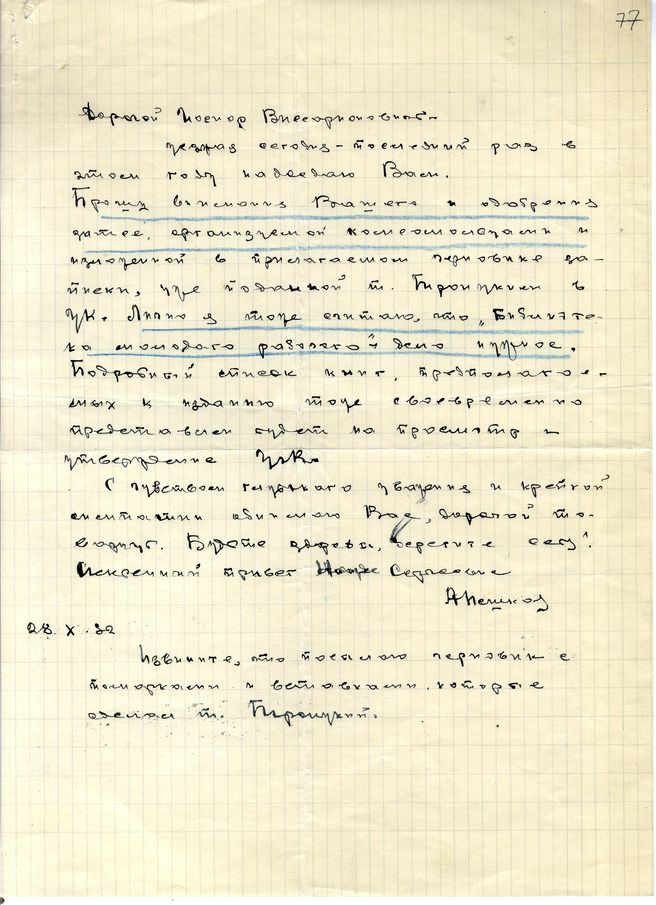 77
Дорогой Иосиф Виссарионович—
уезжая сегодня — последний раз в
этом году надоедаю Вам.
Прошу внимания Вашего и одобрения
затее, организуемой комсомольцами и
изложенной в прилагаемом черновике за-
писки, уже поданной т. Троицким в
ЦК. Лично я тоже считаю, что „Библиоте-
ка молодого рабочего" дело нужное.
Подробный список книг, предполагае-
мых к изданию тоже своевременно
представлен будет на просмотр и
утверждение ЦК.
С чувством глубокого уважения и крепкой
симпатии обнимаю Вас, дорогой то-
варищ. Будьте здоровы, берегите себя!
Искренний привет Сергеевне
А Пешков
28. X. 32
Извините, что посылаю черновик с
помарками и вставками, которые
сделал т. Троицкий.